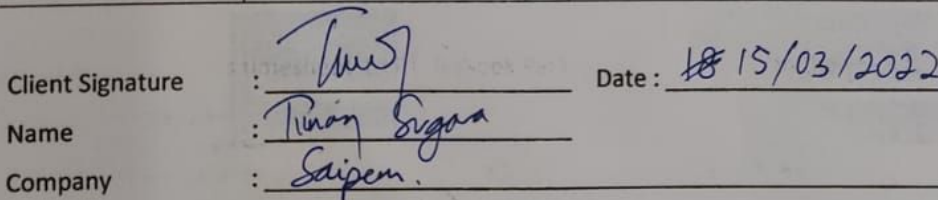 Client Signature : Date : 15/03/2022
Name : Timan Sugara
Company : Saipem.